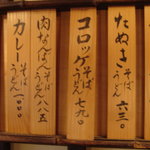 たぬきそばうどん 六三〇
コロッケそばうどん 七九〇
肉なんばんそばうどん 八八五
カレーそばうどん 一〇〇〇